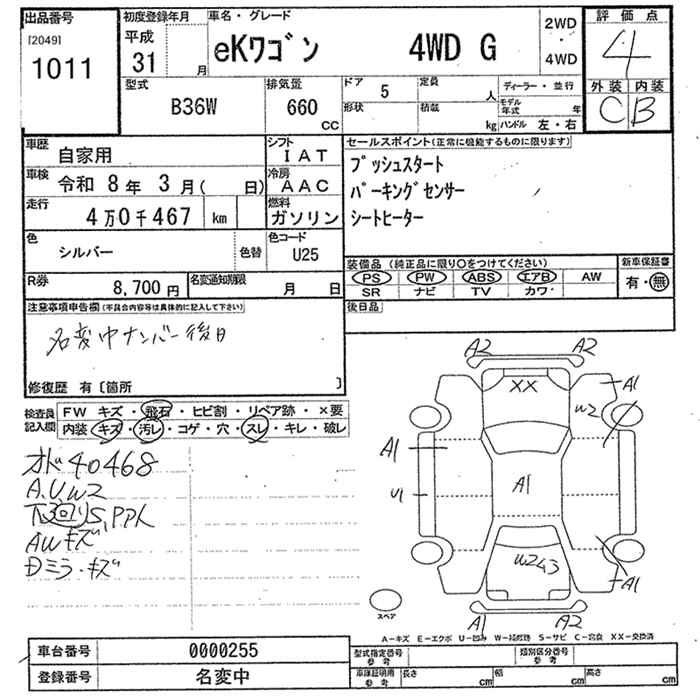 出品番号
[2049]
1011
初度登録年月
平成
31 月
車名・グレード
eKワゴン 4WD G
2WD
・
4WD
評価点
4
外装 内装
C B
型式
B36W
排気量
660
CC
ドア 5
形状
定員 人
積載 kg
ディーラー・並行
モデル年式 年
ハンドル 左・右
車歴
自家用
シフト
IAT
車検
令和 8年 3月( 日)
冷房
AAC
走行
4万0千467 km
燃料
ガソリン
色
シルバー
色替
色コード
U25
R券
8,700円
名変通知期限
月 日
セールスポイント(正常に機能するものに限ります)
プッシュスタート
パーキングセンサー
シートヒーター
装備品(純正品に限り○をつけてください)
PS PW ABS エアB AW
SR ナビ TV カワ
新車保証書
有・無
後日品
注意事項申告欄(不具合内容等は具体的に記入して下さい)
名変中ナンバー後日
修復歴 有〔箇所 〕
検査員
記入欄
FW キズ・飛石・ヒビ割・リペア跡・×要
内装・キズ・汚レ・コゲ・穴・スレ・キレ・破レ
オド40468
A.UW2
下回りS,P.P人
AWキズ
Dミラ・キズ
A2 A2
XX
A1
W2
A1
U1
A1
W2 A3
A1
A1 A2
スペア
A-キズ E-エクボ U-凹み W-補修跡 S-サビ C-腐食 XX-交換済
車台番号
0000255
登録番号
名変中
型式指定番号
参考
類別区分番号
参考
車庫証明用
参考
長さ cm
幅 cm
高さ cm